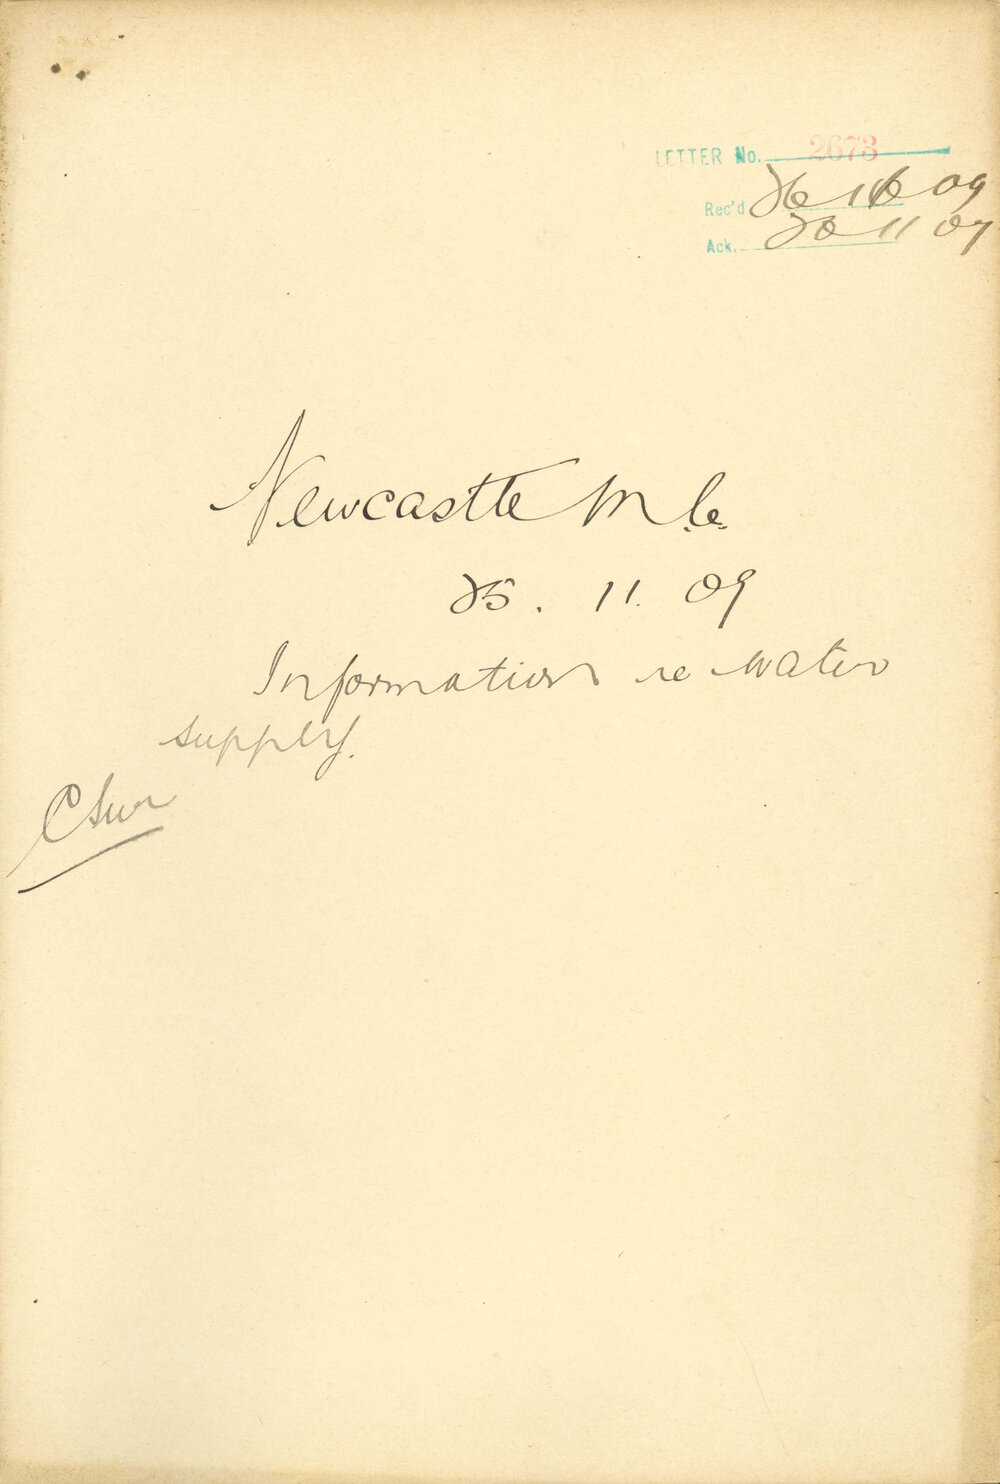 LETTER No. 2673
Rec'd 26 11 09
Ack. 26 11 09
Newcastle M.C.
25. 11. 09
Information re water
supply.